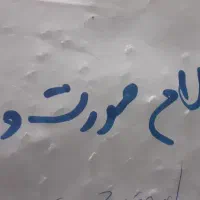 لام صورت و